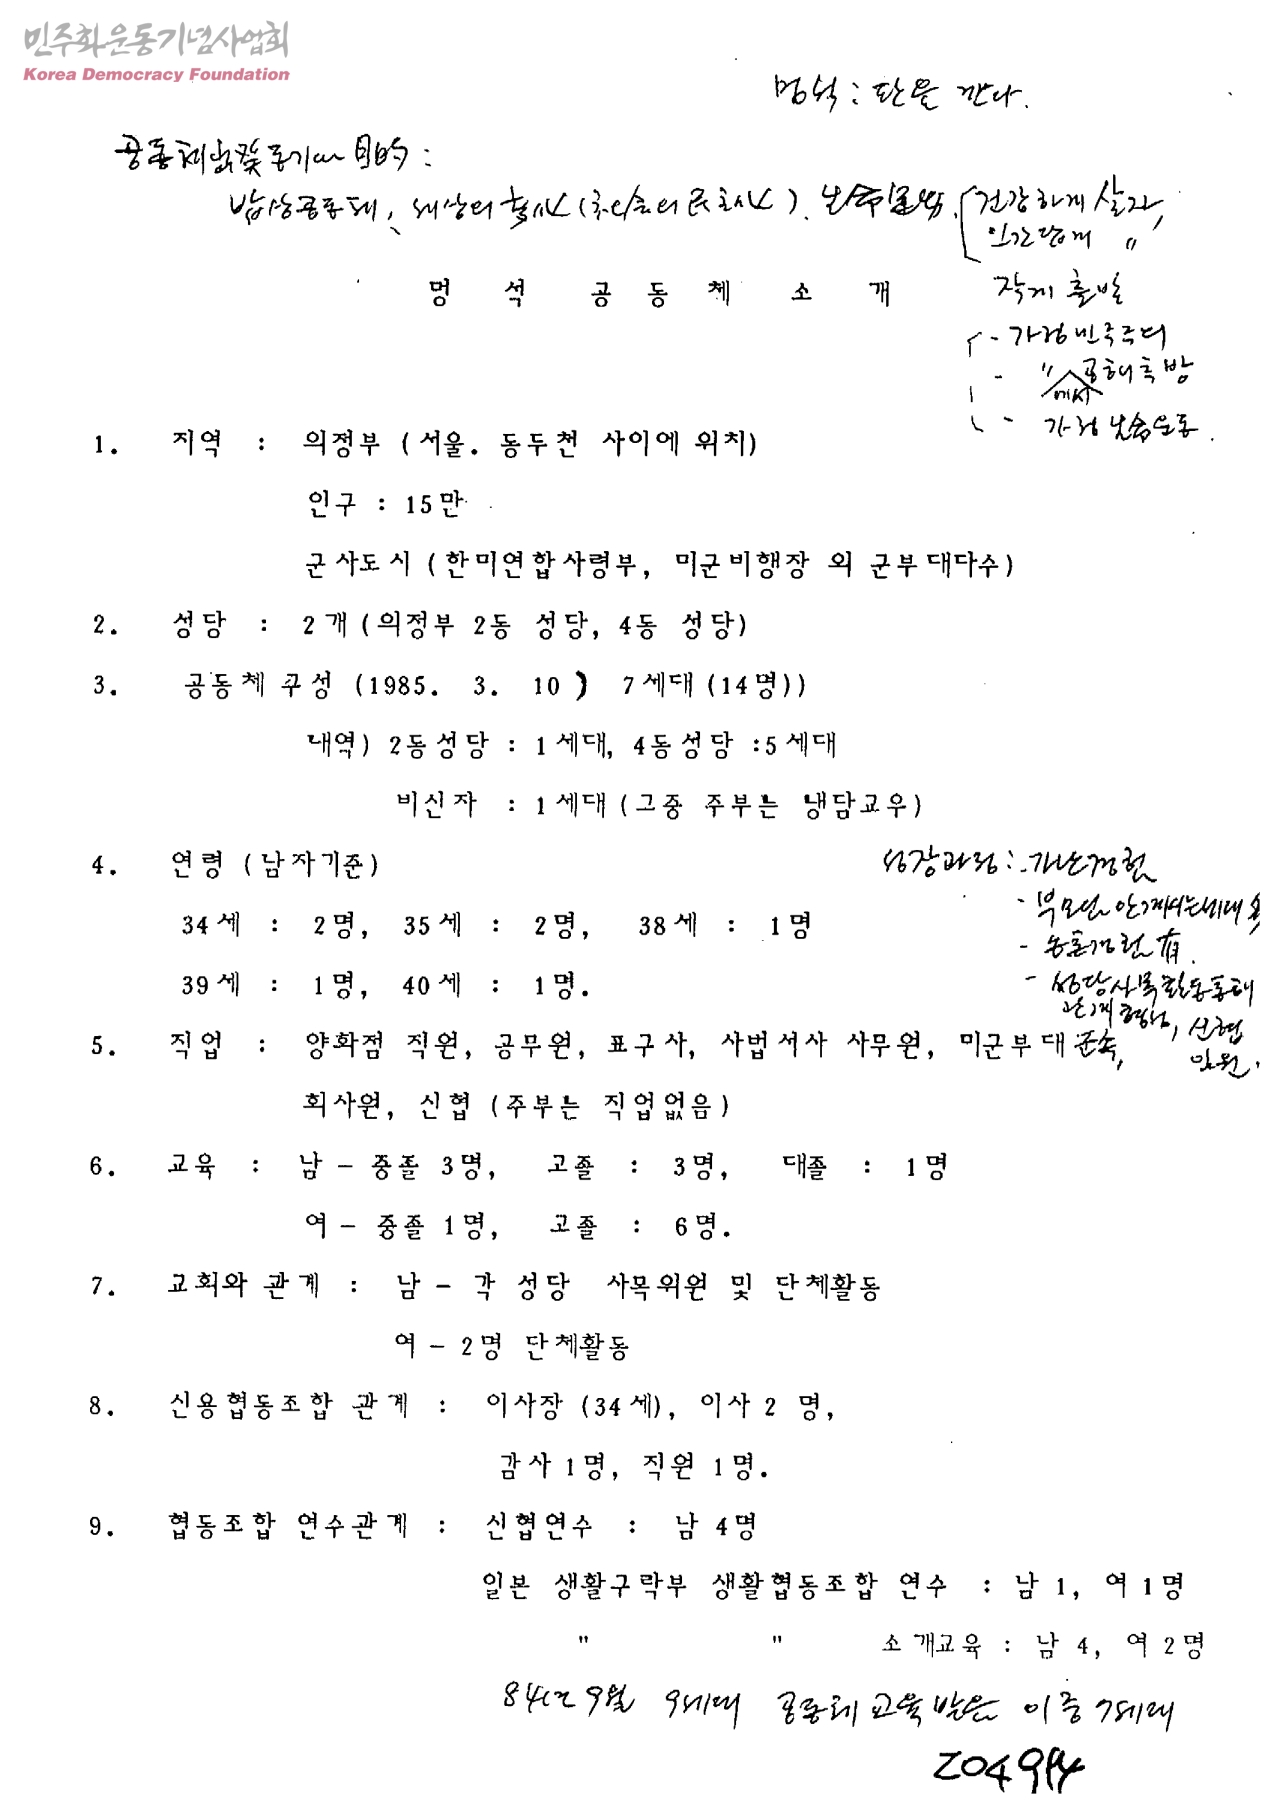 민주화운동기념사업회
Korea Democracy Foundation
멍석 : 판을 깐다.
공동체 出發 동기 目的 :
밥상공동체, 生命運動, 건강하게 살자,
인간답게 〃
멍 석 공 동 체 소 개
작게 출발
- 가정민주주의
- 〃에서 공해추방
- 가정 生命운동.
1. 지역 : 의정부 (서울. 동두천 사이에 위치)
인구 : 15만
군사도시 (한미연합사령부, 미군비행장 외 군부대다수)
2. 성당 : 2개 (의정부 2동 성당, 4동 성당)
3. 공동체 구성 (1985. 3. 10 ) 7세대 (14명))
내역) 2동성당 : 1세대, 4동성당 :5세대
비신자 : 1세대 (그중 주부는 냉담교우)
4. 연령 (남자기준)
성장과정 : - 가난경험
34세 : 2명, 35세 : 2명, 38세 : 1명
- 부모님 안계시는세대
- 농촌경험 有.
39세 : 1명, 40세 : 1명.
- 성당사목활동통해
관계형성, 신협
임원.
5. 직업 : 양화점 직원, 공무원, 표구사, 사법서사 사무원, 미군부대 군속,
회사원, 신협 (주부는 직업없음)
6. 교육 : 남 - 중졸 3명, 고졸 : 3명, 대졸 : 1명
여 - 중졸 1명, 고졸 : 6명.
7. 교회와 관계 : 남 - 각 성당 사목위원 및 단체활동
여 - 2명 단체활동
8. 신용협동조합 관계 : 이사장 (34세), 이사 2 명,
감사 1명, 직원 1명.
9. 협동조합 연수관계 : 신협연수 : 남 4명
일본 생활구락부 생활협동조합 연수 : 남 1, 여 1명
" " 소개교육 : 남 4, 여 2명
84년 9월 9세대 공동체 교육 받은 이중 7세대
204994